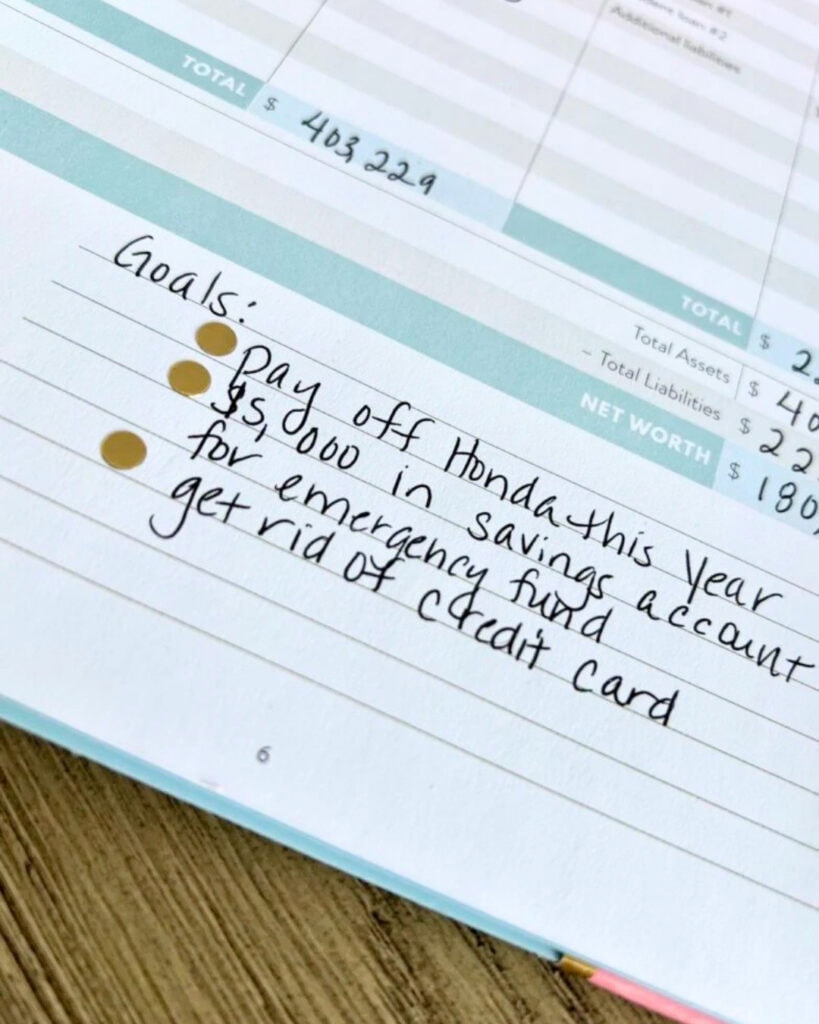 Additional liabilities
TOTAL $ 403,229
TOTAL $ 2
Total Assets $ 40
– Total Liabilities $ 22
NET WORTH $ 180,
Goals:
pay off Honda this year
$5,000 in savings account
for emergency fund
get rid of credit card
6